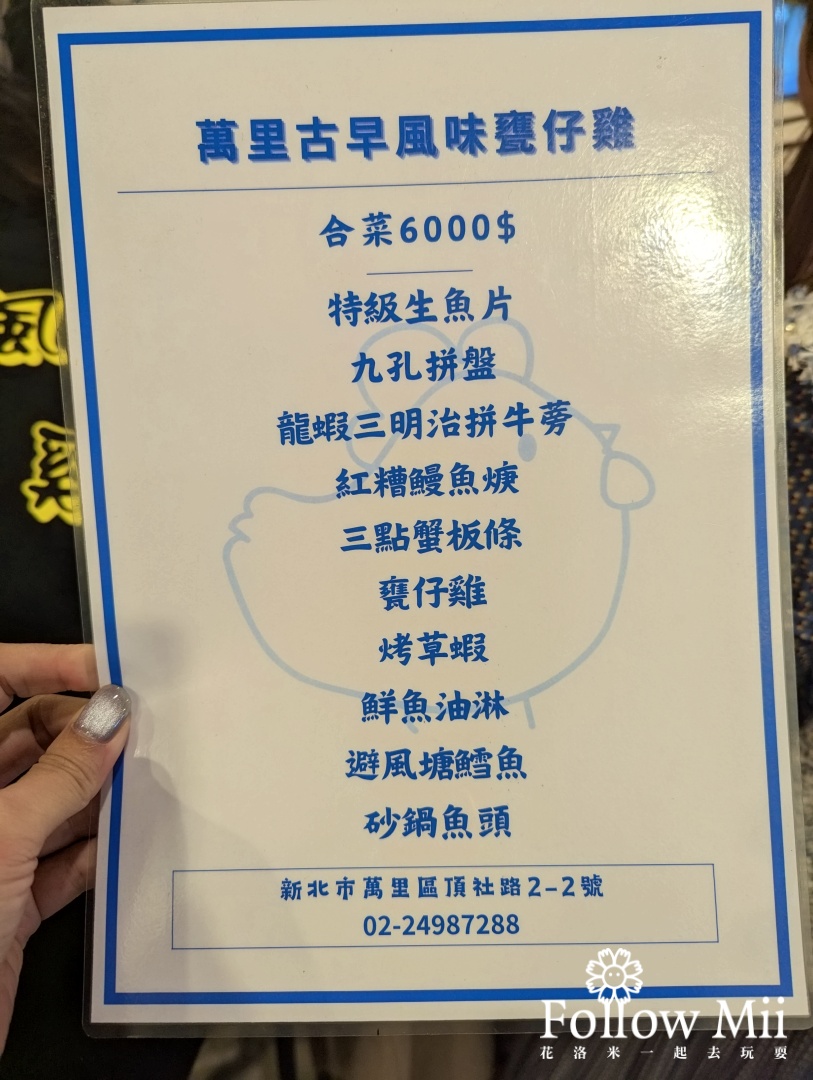 萬里古早風味甕仔雞
合菜6000$
特級生魚片
九孔拼盤
龍蝦三明治拼牛蒡
紅糟鰻魚焿
三點蟹板條
甕仔雞
烤草蝦
鮮魚油淋
避風塘鱈魚
砂鍋魚頭
新北市萬里區頂社路2-2號
02-24987288
Follow Mii
花洛米一起去玩耍